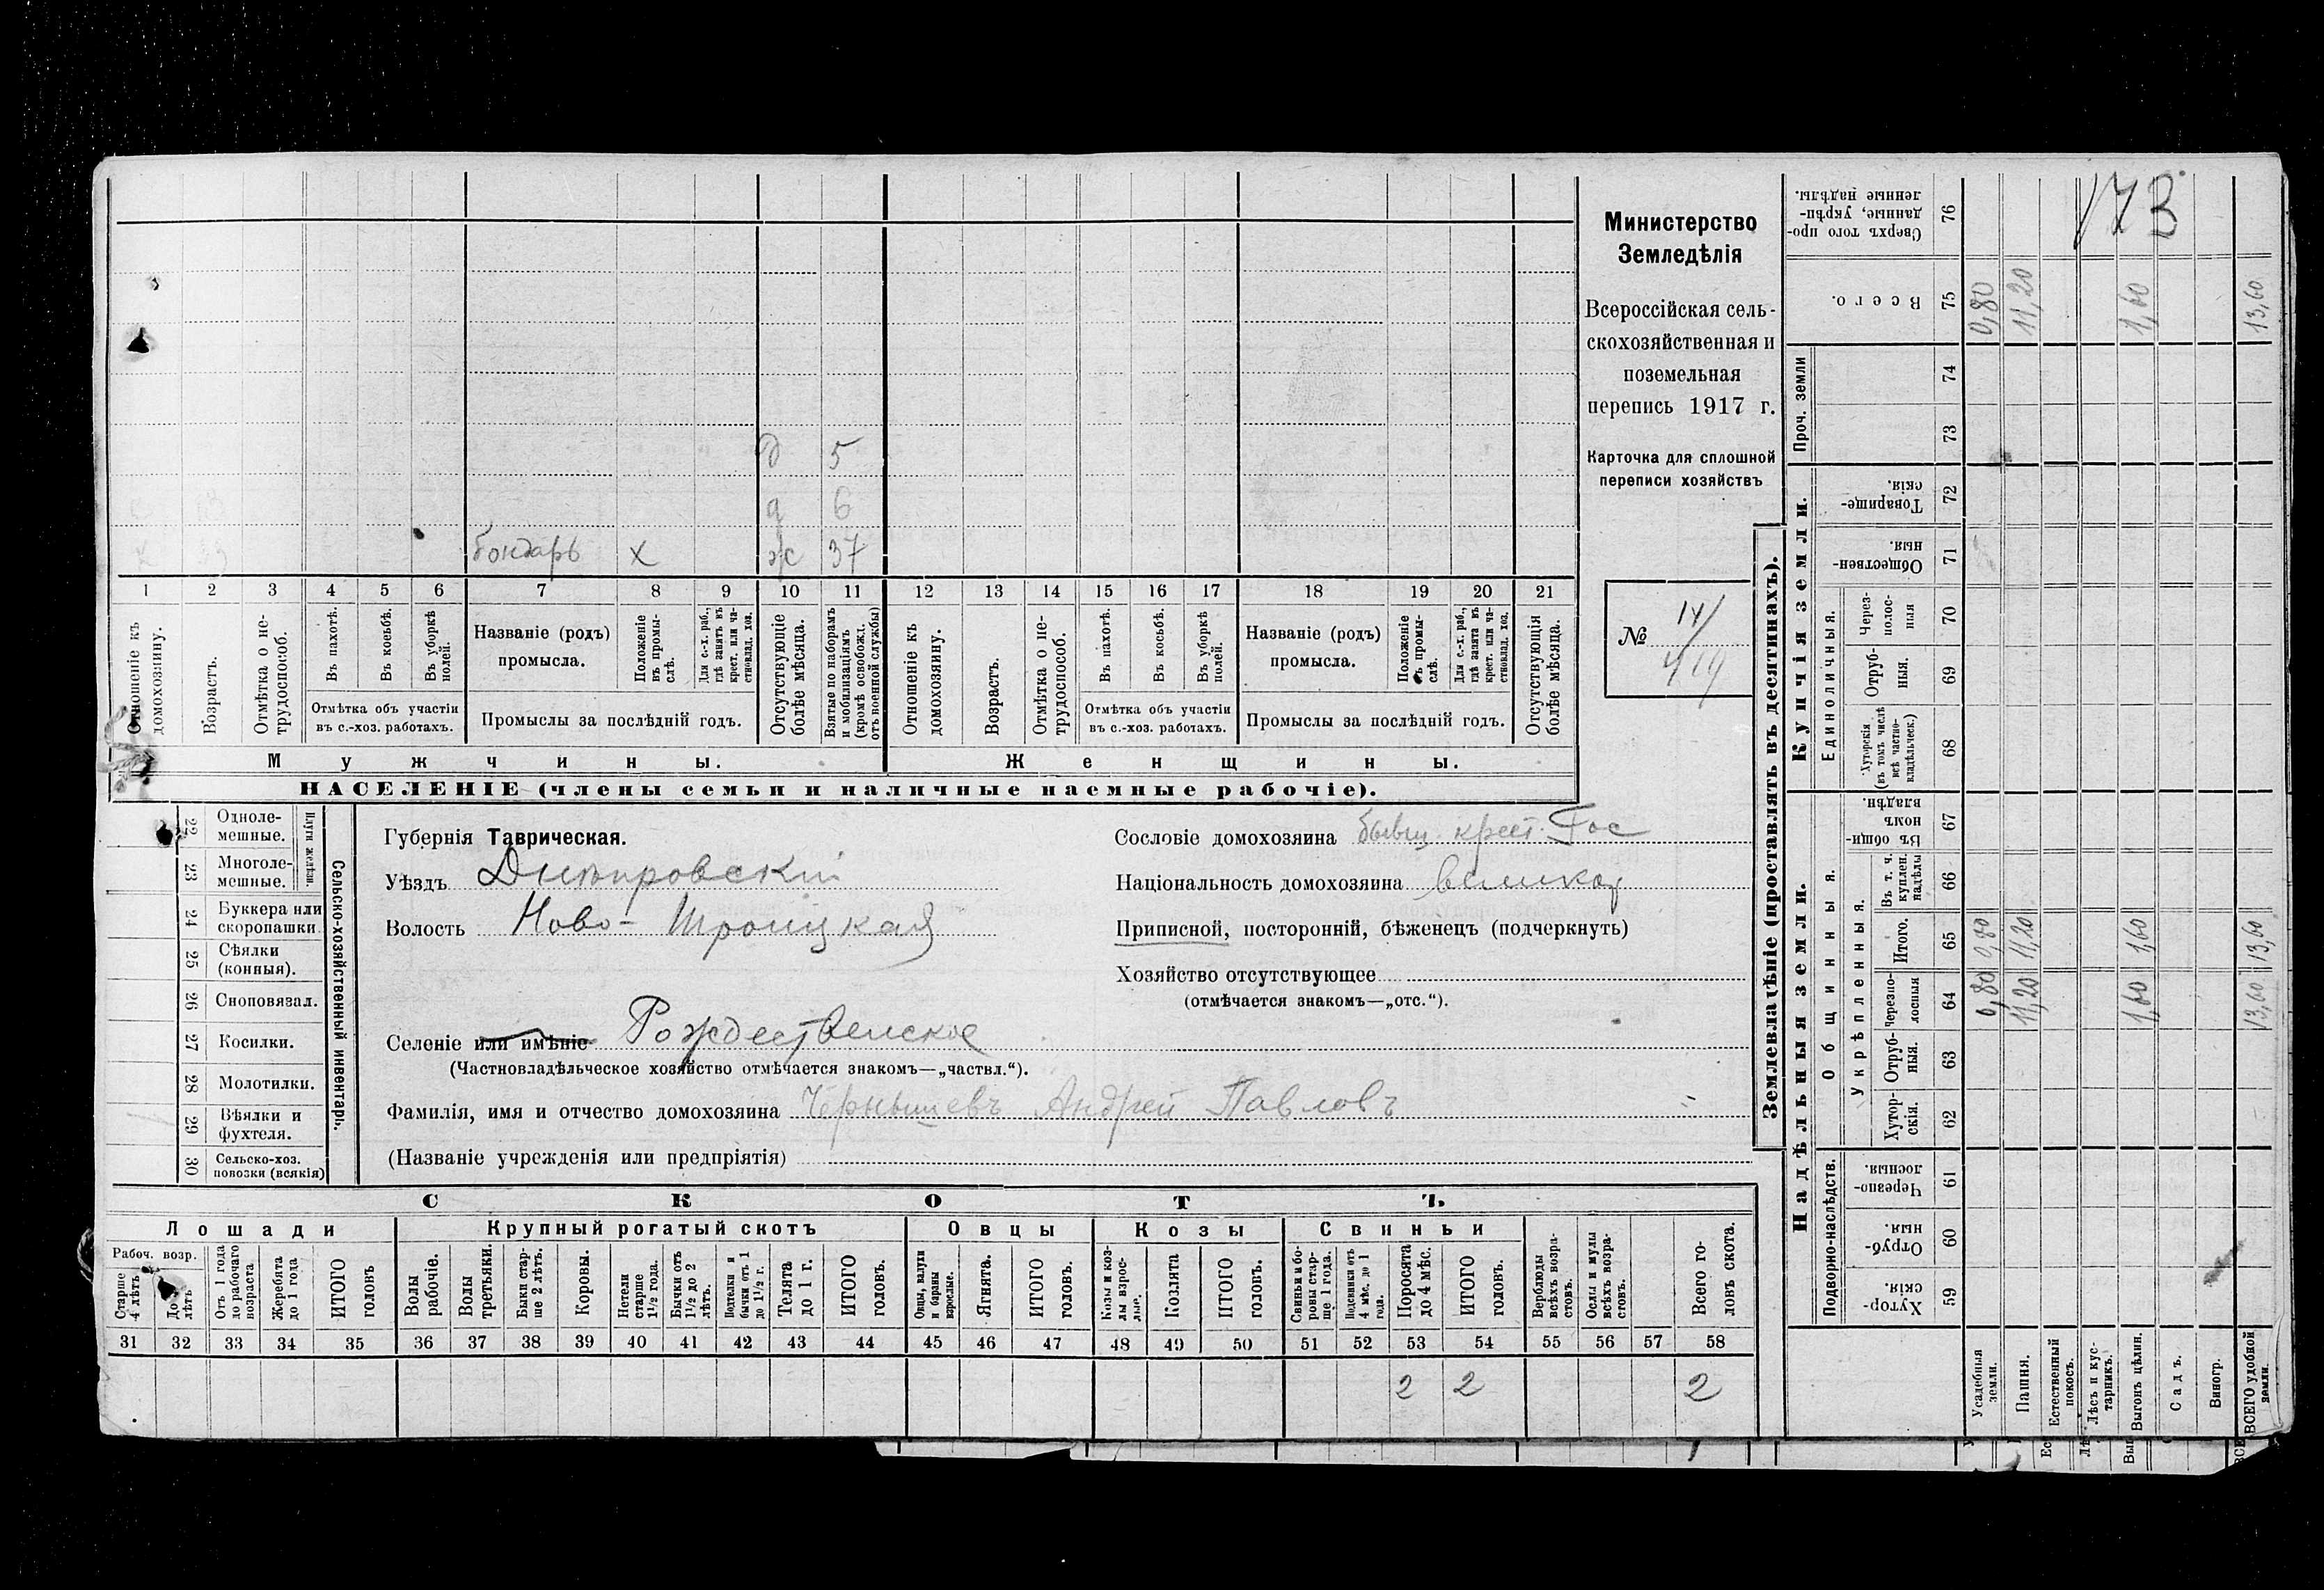 Министерство
Земледѣлія
Всероссійская сель-
скохозяйственная и
поземельная
перепись 1917 г.
Карточка для сплошной
переписи хозяйствъ
№ 14/
419
173
д 5
д 6
бондарь х ж 37
1 2 3 4 5 6 7 8 9 10 11 12 13 14 15 16 17 18 19 20 21
Отношеніе къ домохозяину.
Возрастъ.
Отмѣтка о не-трудоспособ.
Въ пахотѣ.
Въ косьбѣ.
Въ уборкѣ полей.
Отмѣтка объ участіи
въ с.-хоз. работахъ.
Названіе (родъ)
промысла.
Положеніе въ промы-слѣ.
Для с.-х. раб., гдѣ занятъ въ крест. или ча-стновлад. хоз.
Промыслы за послѣдній годъ.
Отсутствующіе болѣе мѣсяца.
Взятые по наборамъ и мобилизаціямъ (кромѣ освобожд. отъ военной службы)
Отношеніе къ домохозяину.
Возрастъ.
Отмѣтка о не-трудоспособ.
Въ пахотѣ.
Въ косьбѣ.
Въ уборкѣ полей.
Отмѣтка объ участіи
въ с.-хоз. работахъ.
Названіе (родъ)
промысла.
Положеніе въ промы-слѣ.
Для с.-х. раб., гдѣ занята въ крест. или ча-стновлад. хоз.
Промыслы за послѣдній годъ.
Отсутствующія болѣе мѣсяца.
Мужчины. Женщины.
НАСЕЛЕНІЕ (члены семьи и наличные наемные рабочіе).
Сельско-хозяйственный инвентарь.
Плуги желѣзн.
22 Одноле-мешные.
23 Многоле-мешные.
24 Буккера или скоропашки.
25 Сѣялки (конныя).
26 Сноповязал.
27 Косилки.
28 Молотилки.
29 Вѣялки и фухтеля.
30 Сельско-хоз. повозки (всякія)
Губернія Таврическая.
Уѣздъ Днѣпровскій
Волость Ново-Троицкая
Селеніе или имѣніе Рождественское
(Частновладѣльческое хозяйство отмѣчается знакомъ—„частвл.“).
Фамилія, имя и отчество домохозяина Чернышевъ Андрей Павловъ
(Названіе учрежденія или предпріятія)
Сословіе домохозяина бывш. крест. Гос
Національность домохозяина великор
Приписной, посторонній, бѣженецъ (подчеркнуть)
Хозяйство отсутствующее
(отмѣчается знакомъ—„отс.“).
СКОТЪ
Лошади Крупный рогатый скотъ Овцы Козы Свиньи
Рабоч. возр.
Старше 4 лѣтъ
До 4 лѣтъ
Отъ 1 года до рабочаго возраста
Жеребята до 1 года
ИТОГО головъ
Волы рабочіе.
Волы третьяки.
Быки стар-ше 2 лѣтъ.
Коровы.
Нетели старше 1½ года.
Бычки отъ 1½ до 2 лѣтъ.
Подтелки и бычки отъ 1 до 1½ г.
Телята до 1 г.
ИТОГО головъ.
Овцы, валухи и бараны взрослые.
Ягнята.
ИТОГО головъ.
Козы и коз-лы взрос-лые.
Козлята
ИТОГО головъ.
Свиньи и бо-ровы стар-ше 1 года.
Подсвинки отъ 4 мѣс. до 1 года.
Поросята до 4 мѣс.
ИТОГО головъ.
Верблюды всѣхъ возра-стовъ.
Ослы и мулы всѣхъ возра-стовъ.
Всего го-ловъ скота.
31 32 33 34 35 36 37 38 39 40 41 42 43 44 45 46 47 48 49 50 51 52 53 54 55 56 57 58
2 2 2
Землевладѣніе (проставлять въ десятинахъ).
Надѣльныя земли. Купчія земли. Проч. земли
Подворно-наслѣдств.
Общинныя.
Укрѣпленныя.
Единоличныя.
Хутор-скія. 59
Отруб-ныя. 60
Черезпо-лосныя. 61
Хутор-скія. 62
Отруб-ныя. 63
Черезпо-лосныя 64
Итого. 65
Въ т. ч. куплен. надѣлы 66
Въ общи-номъ владѣн. 67
Хуторскія (въ томъ числѣ всѣ частно-владѣльческ.) 68
Отруб-ныя. 69
Через-полос-ныя 70
Обществен-ныя. 71
Товарище-скія. 72
73
74
Всего. 75
Сверхъ того про-данные, укрѣп-ленные надѣлы. 76
Усадебныя земли. 0,80 0,80 0,80
Пашня. 11,20 11,20 11,20
Естественный покосъ.
Лѣсъ и кус-тарникъ.
Выгонъ цѣлин. 1,60 1,60 1,60
Садъ.
Виногр.
ВСЕГО удобной земли. 13,60 13,60 13,60